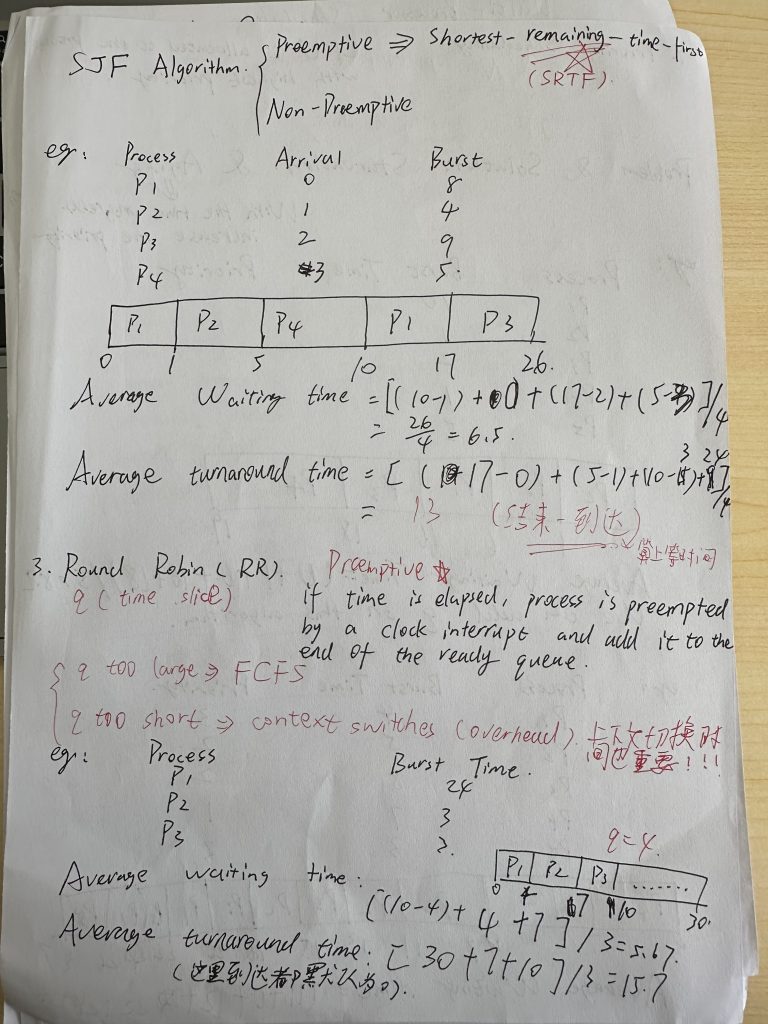 SJF Algorithm. { Preemptive ⇒ Shortest-remaining-time-first
(SRTF).
Non-Preemptive
eg: Process Arrival Burst
P1 0 8
P2 1 4
P3 2 9
P4 3 5.
P1 P2 P4 P1 P3
0 1 5 10 17 26.
Average Waiting time = [(10-1) + 0 + (17-2) + (5-3)]/4
= 26/4 = 6.5.
3 24
Average turnaround time = [ (17-0) + (5-1) + (10- ) + ]/4
= 13 (结束-到达)
算上等时间
3. Round Robin (RR). Preemptive ☆
q (time slice) if time is elapsed, process is preempted
by a clock interrupt and add it to the
end of the ready queue.
{ q too large ⇒ FCFS
q too short ⇒ context switches (overhead). 上下文切换时
间也重要!!!
eg: Process Burst Time.
P1 24
P2 3
P3 3.
q=4.
P1 P2 P3 .......
0 4 7 10 30.
Average waiting time: [(10-4)+ 4 +7]/3=5.67.
Average turnaround time: [30+7+10]/3=15.7
(这里到达都默认为0).